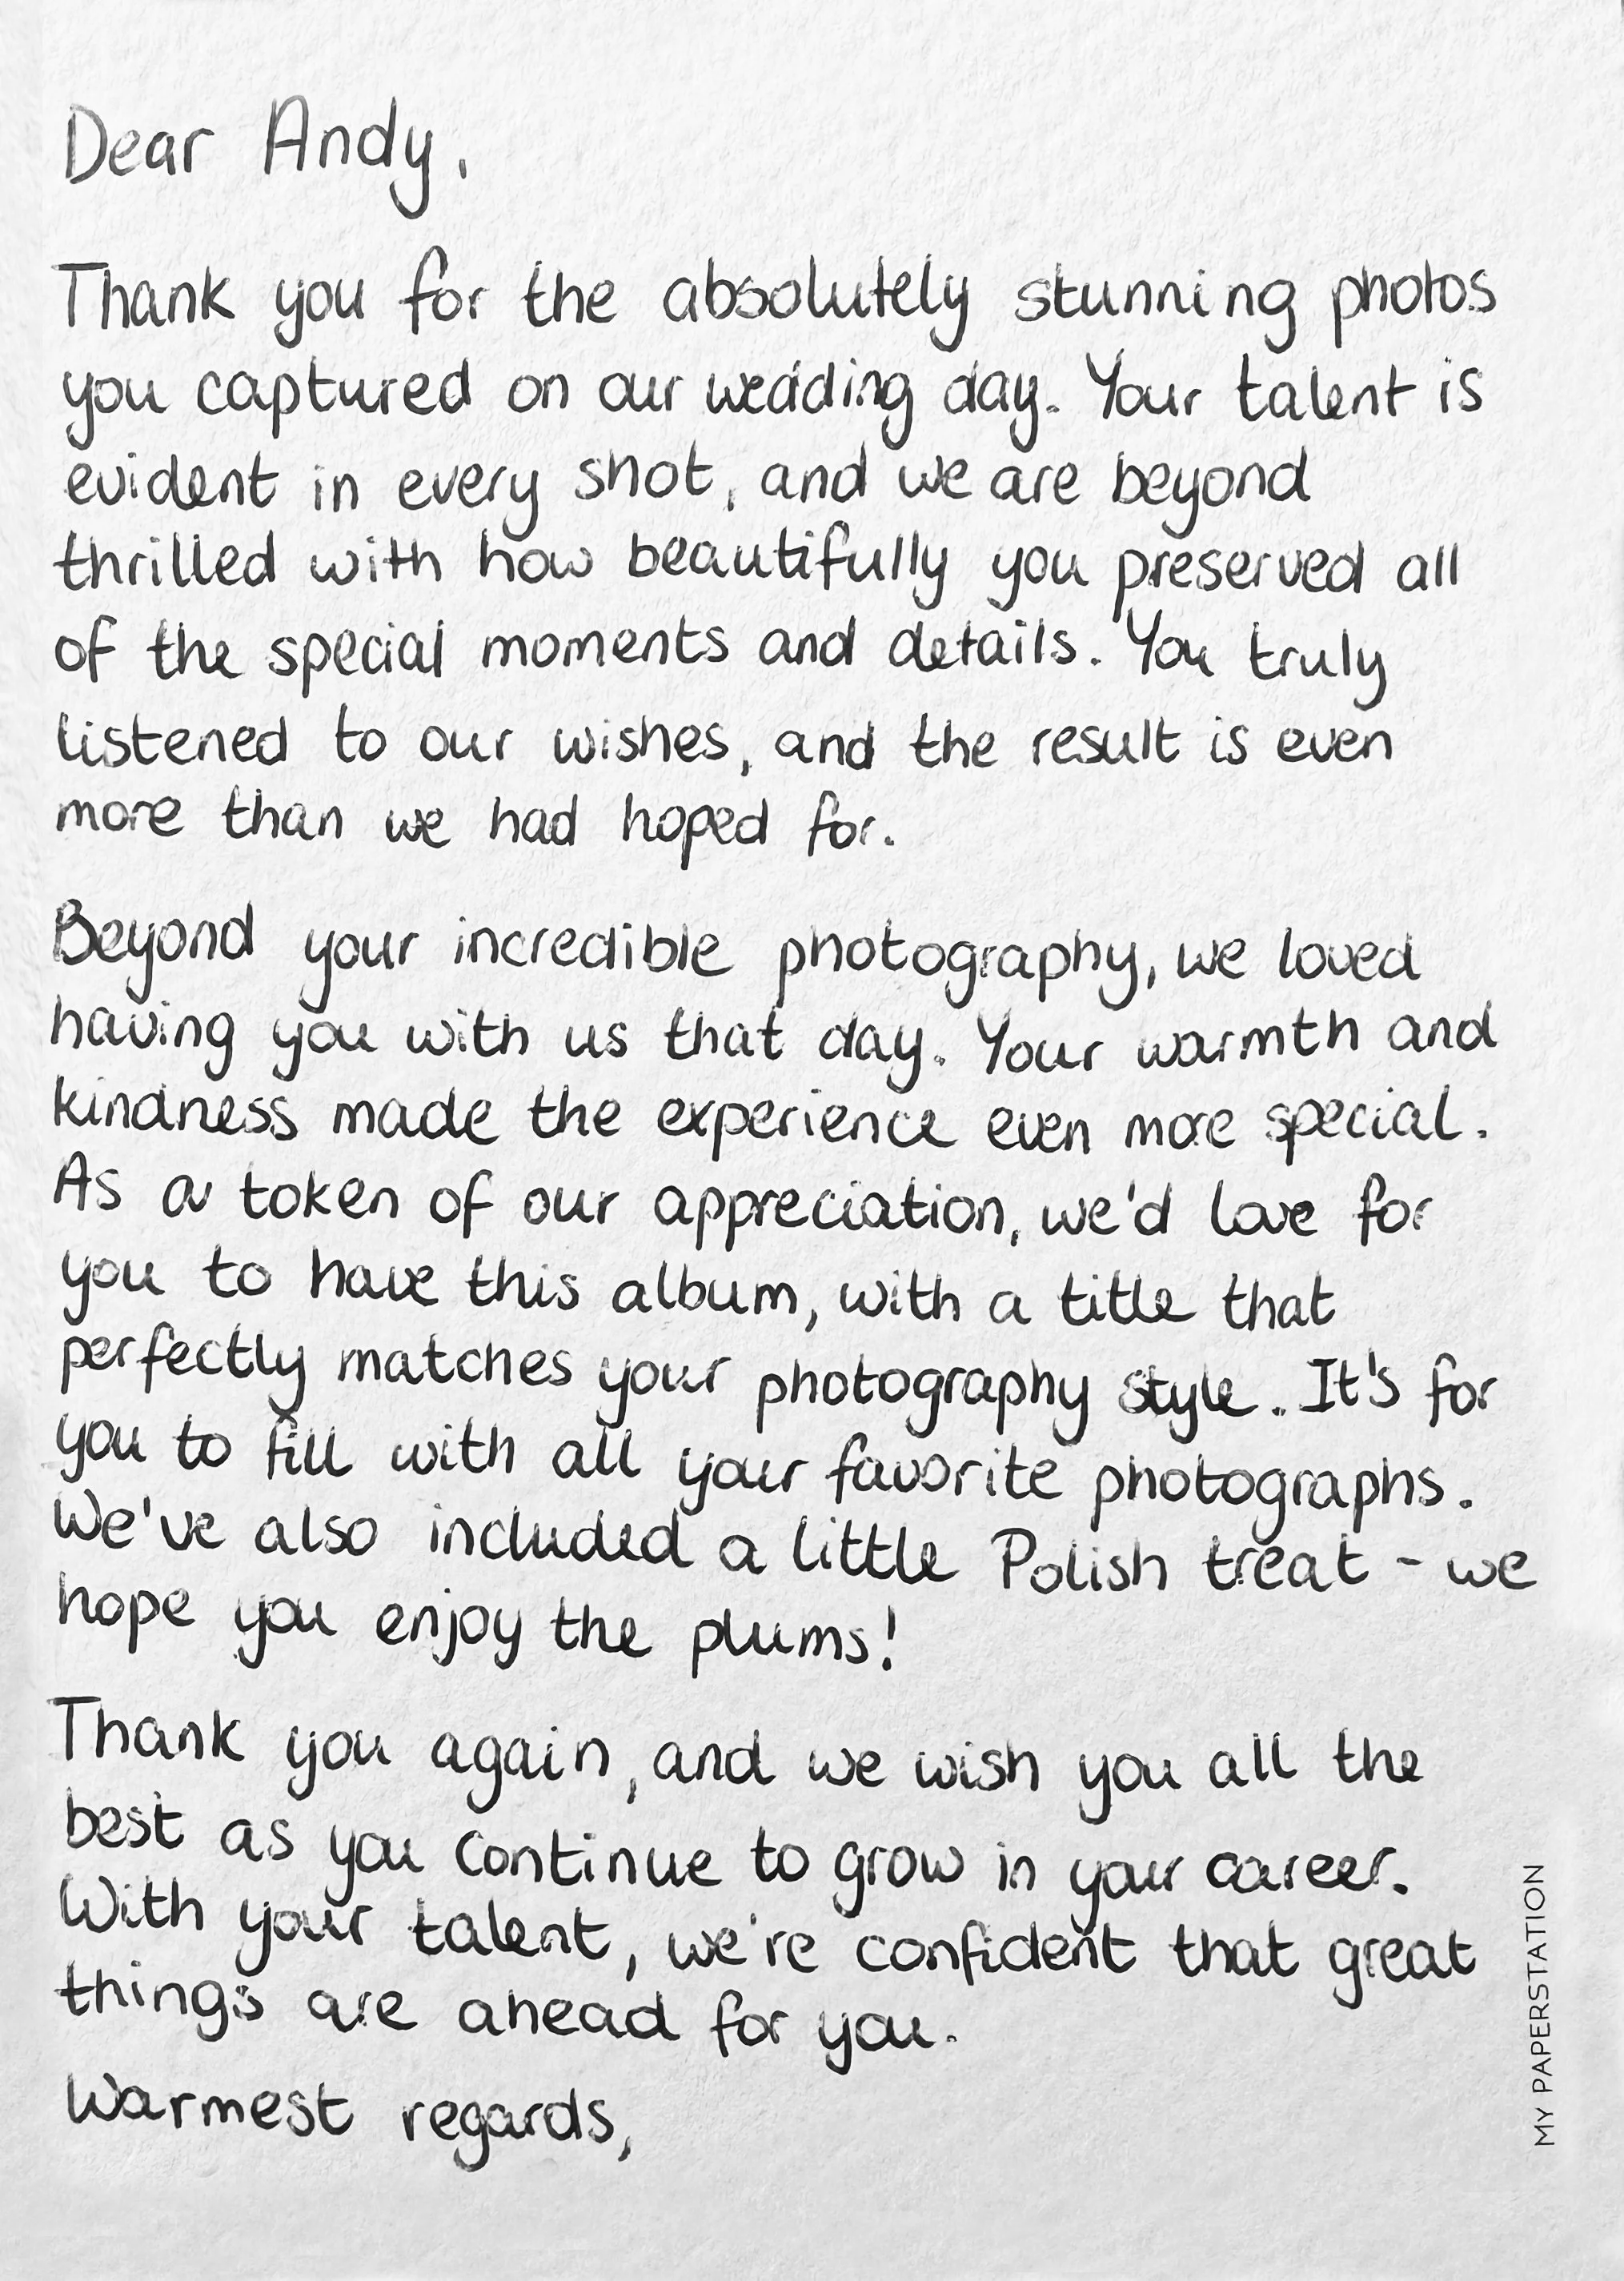 Dear Andy,
Thank you for the absolutely stunning photos
you captured on our wedding day. Your talent is
evident in every shot, and we are beyond
thrilled with how beautifully you preserved all
of the special moments and details. You truly
listened to our wishes, and the result is even
more than we had hoped for.
Beyond your incredible photography, we loved
having you with us that day. Your warmth and
kindness made the experience even more special.
As a token of our appreciation, we'd love for
you to have this album, with a title that
perfectly matches your photography style. It's for
you to fill with all your favorite photographs.
We've also included a little Polish treat - we
hope you enjoy the plums!
Thank you again, and we wish you all the
best as you continue to grow in your career.
With your talent, we're confident that great
things are ahead for you.
Warmest regards,
MY PAPERSTATION